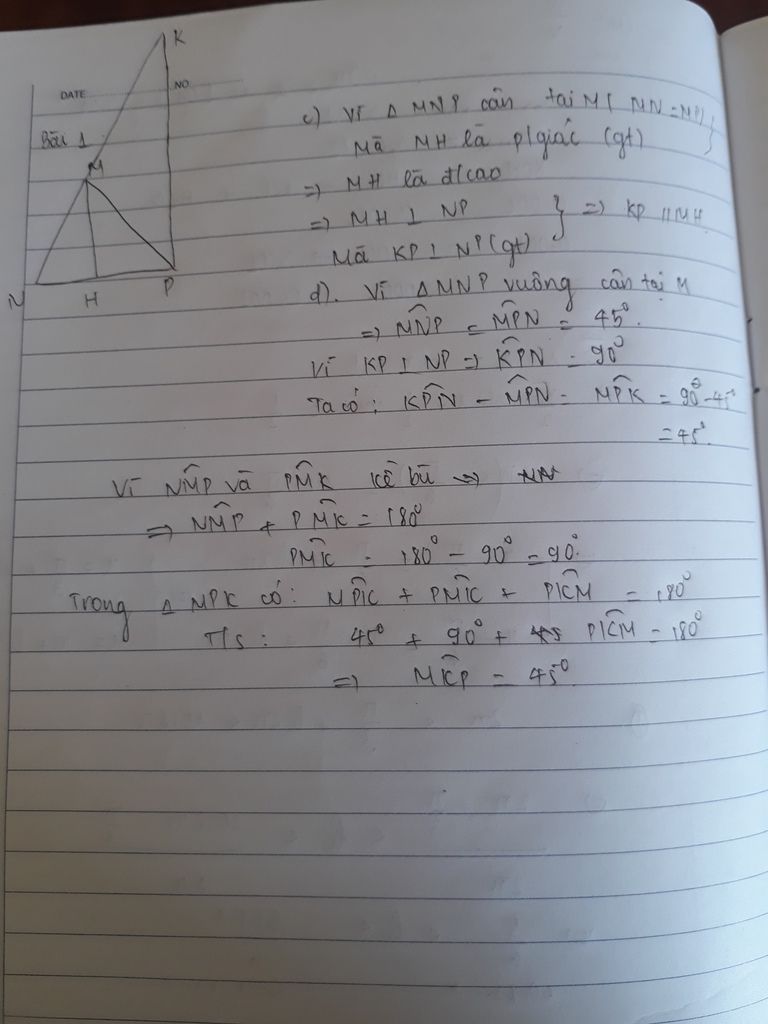 K
DATE
NO
Bài 1
M
N
H
P
c) Vì △ MNP cân tại M ( MN = MP) }
Mà MH là p/giác (gt)
=> MH là đ/cao
=> MH ⊥ NP } => KP // MH.
Mà KP ⊥ NP (gt)
d). Vì △MNP vuông cân tại M
=> MN̂P = MP̂N = 45°.
Vì KP ⊥ NP => KP̂N = 90°
Ta có : KP̂N - MP̂N = MP̂K = 90° - 45°
= 45°.
Vì NM̂P và PM̂K kề bù =>
=> NM̂P + PM̂K = 180°
PM̂K = 180° - 90° = 90°.
Trong △ MPK có: MP̂K + PM̂K + PK̂M = 180°
T/s : 45° + 90° + PK̂M = 180°
=> MK̂P = 45°.